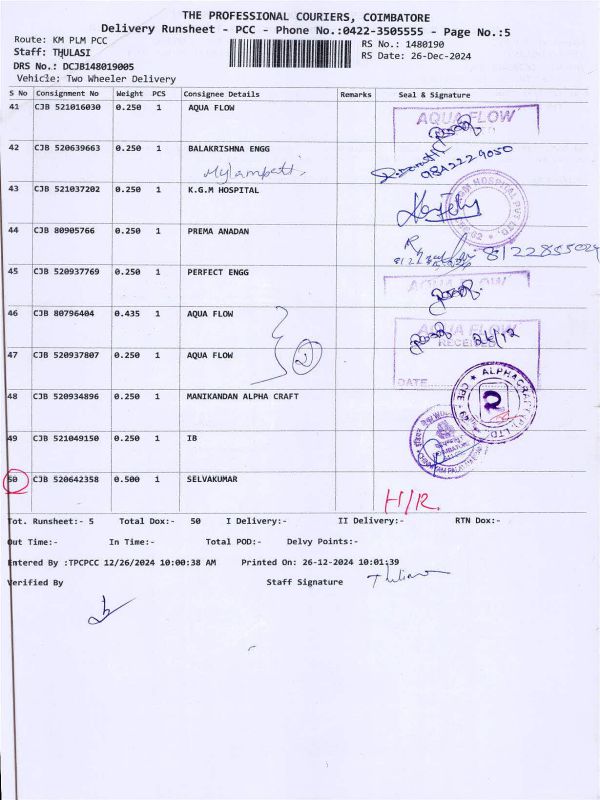 THE PROFESSIONAL COURIERS, COIMBATORE
Delivery Runsheet - PCC - Phone No.:0422-3505555 - Page No.:5
Route: KM PLM PCC
RS No.: 1480190
Staff: THULASI
RS Date: 26-Dec-2024
DRS No.: DCJB148019005
Vehicle: Two Wheeler Delivery
S No Consignment No Weight PCS Consignee Details Remarks Seal & Signature
41 CJB 521016030 0.250 1 AQUA FLOW
AQUA FLOW
42 CJB 520639663 0.250 1 BALAKRISHNA ENGG
Mylampatti
43 CJB 521037202 0.250 1 K.G.M HOSPITAL
44 CJB 80905766 0.250 1 PREMA ANADAN
45 CJB 520937769 0.250 1 PERFECT ENGG
AQUA FLOW
46 CJB 80796404 0.435 1 AQUA FLOW
AQUA FLOW
26/12
47 CJB 520937807 0.250 1 AQUA FLOW
2
DATE
48 CJB 520934896 0.250 1 MANIKANDAN ALPHA CRAFT
49 CJB 521049150 0.250 1 IB
50 CJB 520642358 0.500 1 SELVAKUMAR
H/R.
Tot. Runsheet:- 5 Total Dox:- 50 I Delivery:- II Delivery:- RTN Dox:-
Out Time:- In Time:- Total POD:- Delvy Points:-
Entered By :TPCPCC 12/26/2024 10:00:38 AM Printed On: 26-12-2024 10:01:39
Verified By Staff Signature